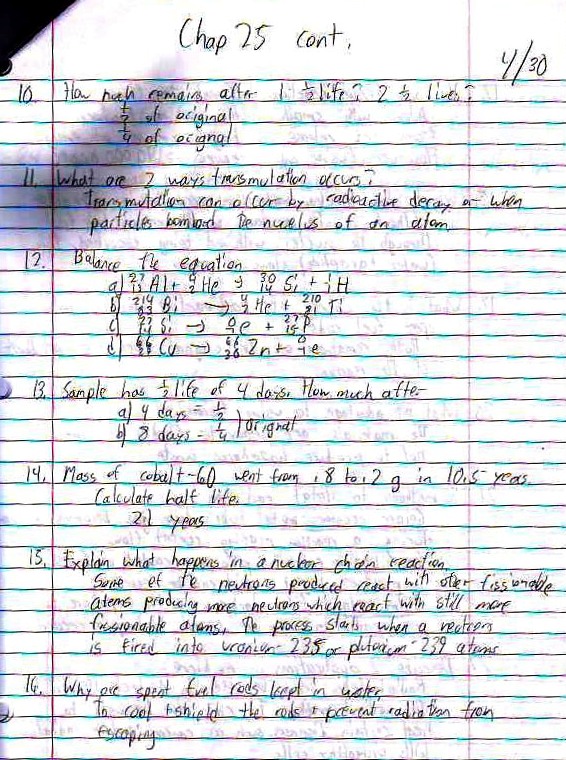 Chap 25 cont.
4/30
10. How much remains after 1 ½ life? 2 ½ lives?
½ of original
¼ of orignal
11. What are 2 ways transmutation occurs?
Transmutation can occur by radioactive decay or when
particles bombard the nucelus of an atom
12. Balance the equation
a) ²⁷₁₃Al + ⁴₂He → ³⁰₁₄Si + ¹₁H
b) ²¹⁴₈₃Bi → ⁴₂He + ²¹⁰₈₁Ti
c) ²⁷₁₄Si → ⁰₋₁e + ²⁷₁₅P
d) ⁶⁶₂₉Cu → ⁶⁶₃₀Zn + ⁰₋₁e
13. Sample has ½ life of 4 days. How much after
a) 4 days = ½
b) 8 days - ¼ ) Orignal
14. Mass of cobalt-60 went from .8 to .2 g in 10.5 years.
Calculate half life.
2.1 years
15. Explain what happens in a nuclear chain reaction.
Some of the neutrons produced react with other fissionable
atoms producing more neutrons which react with still more
fissionable atoms. The process starts when a neutron
is fired into uranium-235 or plutonium-239 atoms
16. Why are spent fuel rods kept in water
To cool + shield the rods + prevent radiation from
escaping